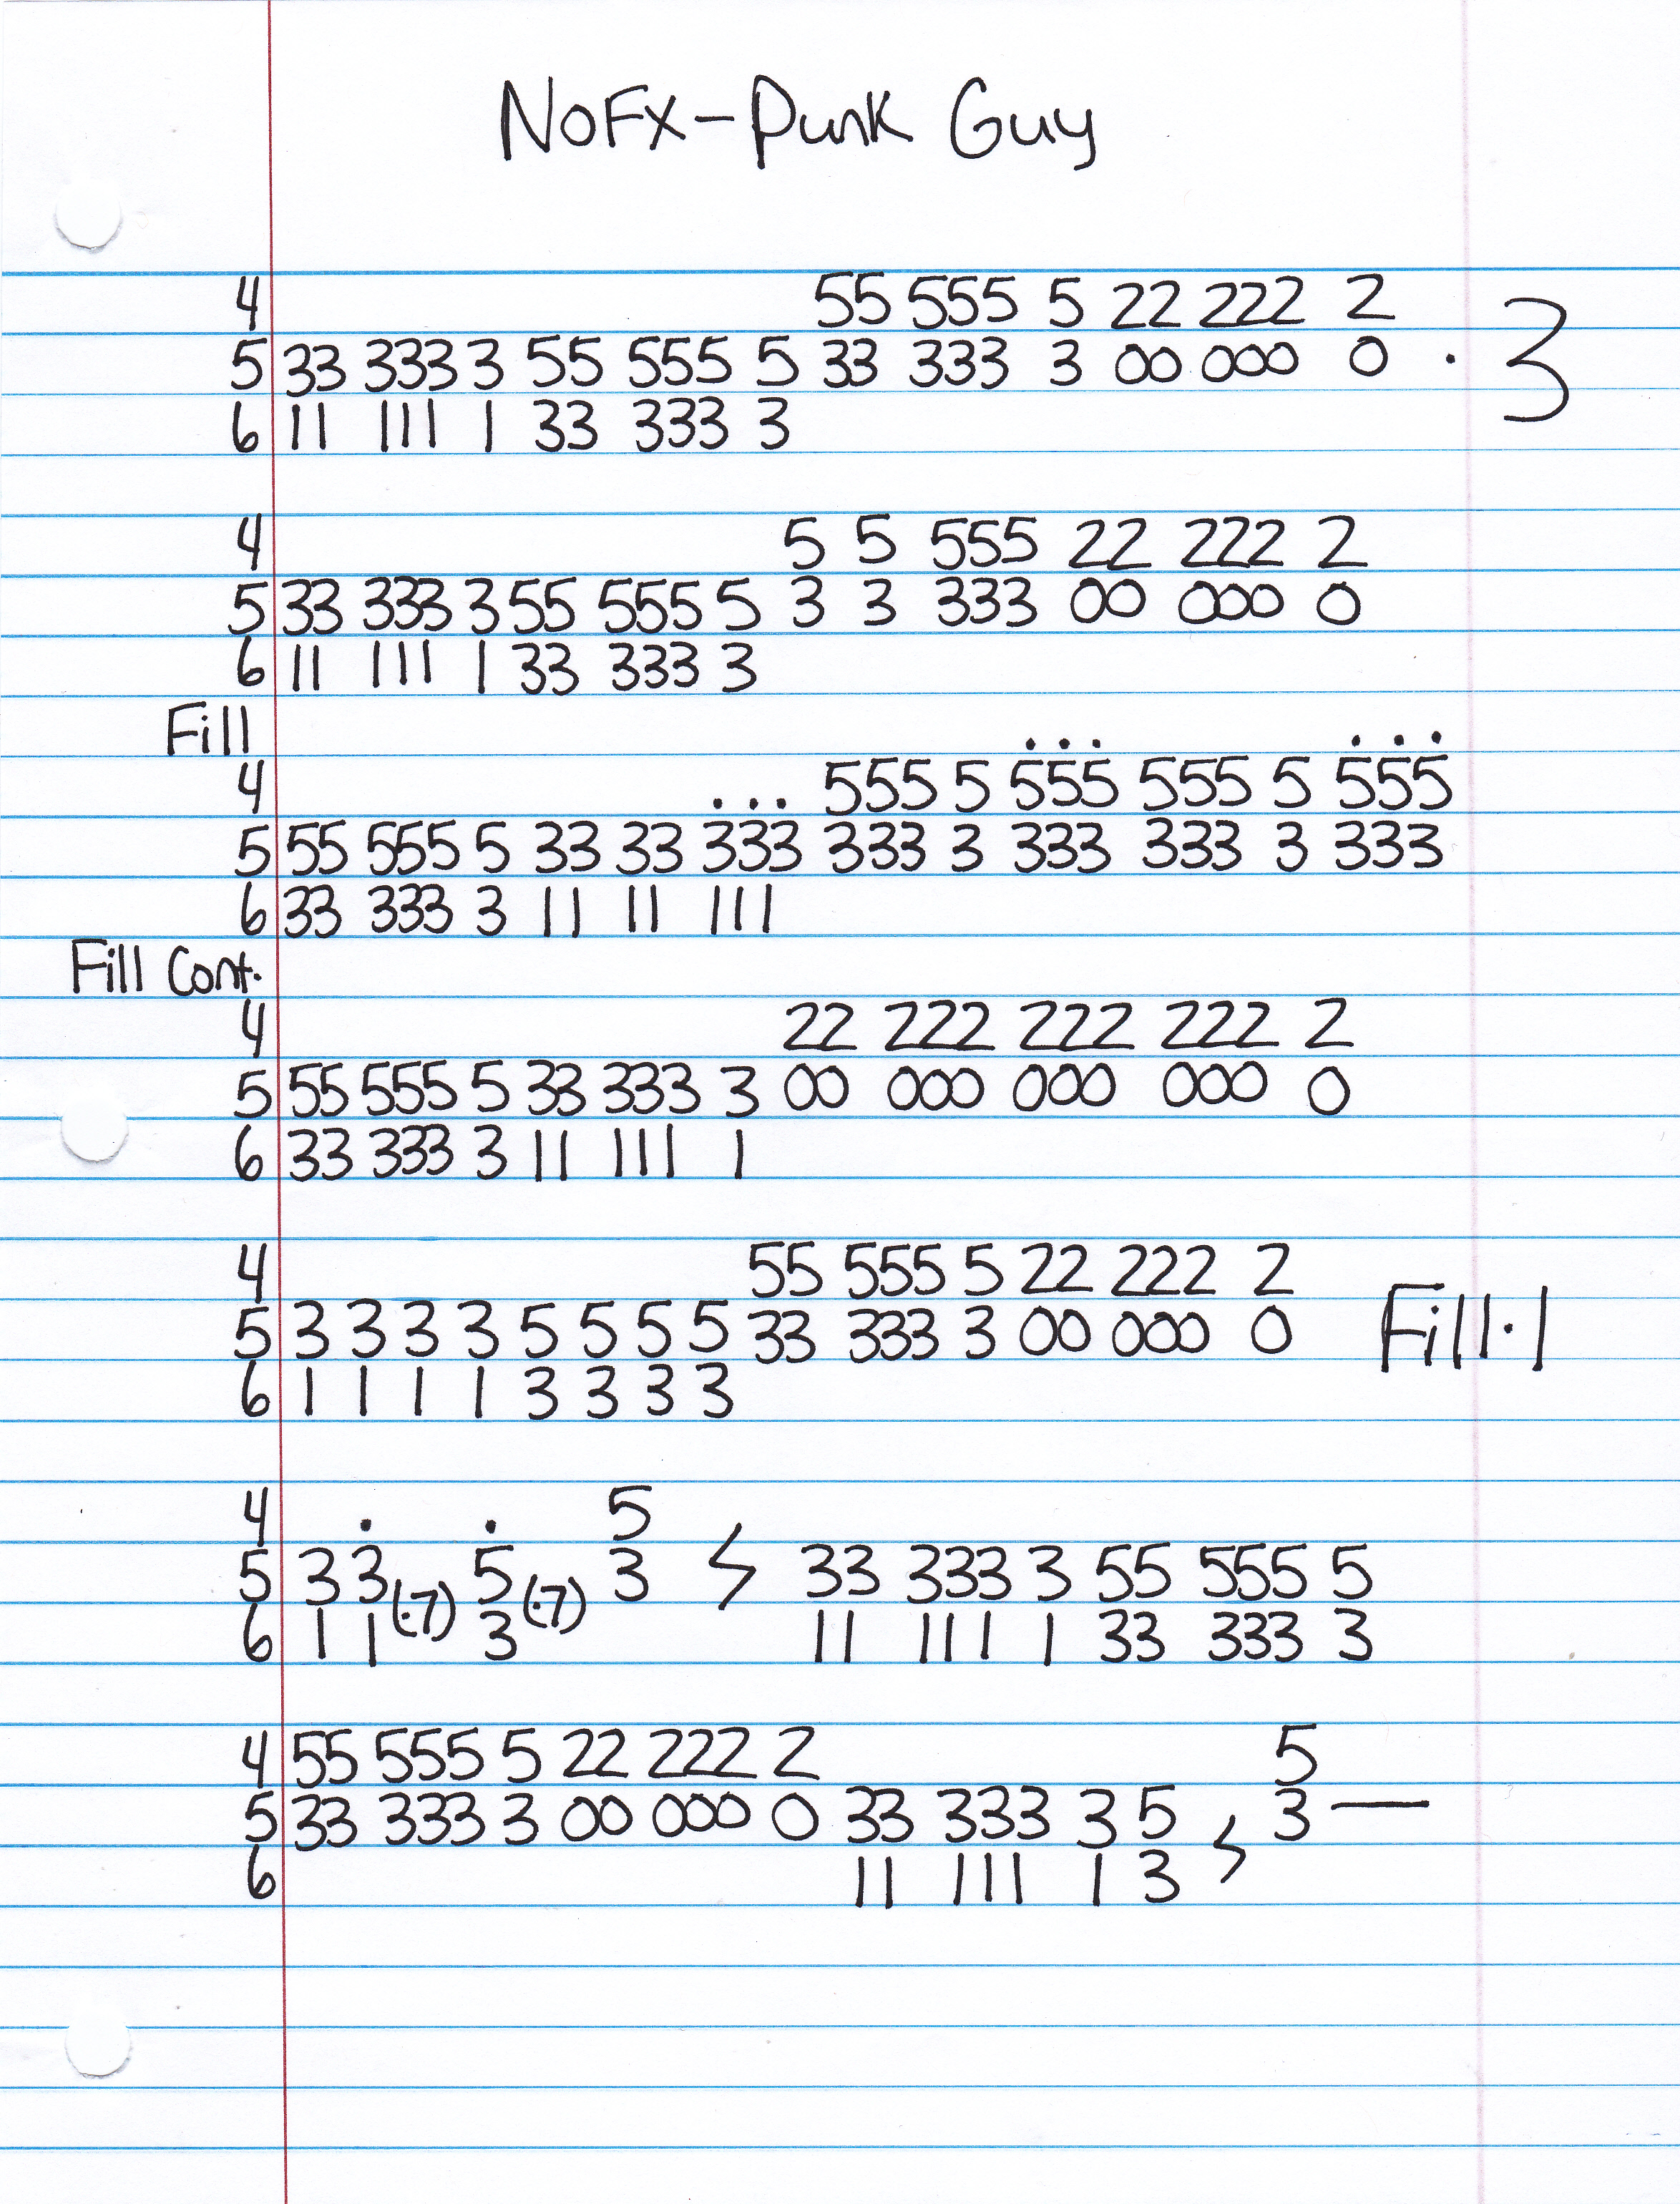 NoFX - Punk Guy
4 55 555 5 22 222 2
5 33 333 3 55 555 5 33 333 3 00 000 0 . 3
6 11 111 1 33 333 3
4 5 5 555 22 222 2
5 33 333 3 55 555 5 3 3 333 00 000 0
6 11 111 1 33 333 3
Fill
4 555 5 555 555 5 555
5 55 555 5 33 33 333 333 3 333 333 3 333
6 33 333 3 11 11 111
Fill Cont.
4 22 222 222 222 2
5 55 555 5 33 333 3 00 000 000 000 0
6 33 333 3 11 111 1
4 55 555 5 22 222 2
5 3 3 3 3 5 5 5 5 33 333 3 00 000 0 Fill . 1
6 1 1 1 1 3 3 3 3
4 5
5 3 3 (.7) 5 (.7) 3 33 333 3 55 555 5
6 1 1 3 11 111 1 33 333 3
4 55 555 5 22 222 2 5
5 33 333 3 00 000 0 33 333 3 5 3 —
6 11 111 1 3